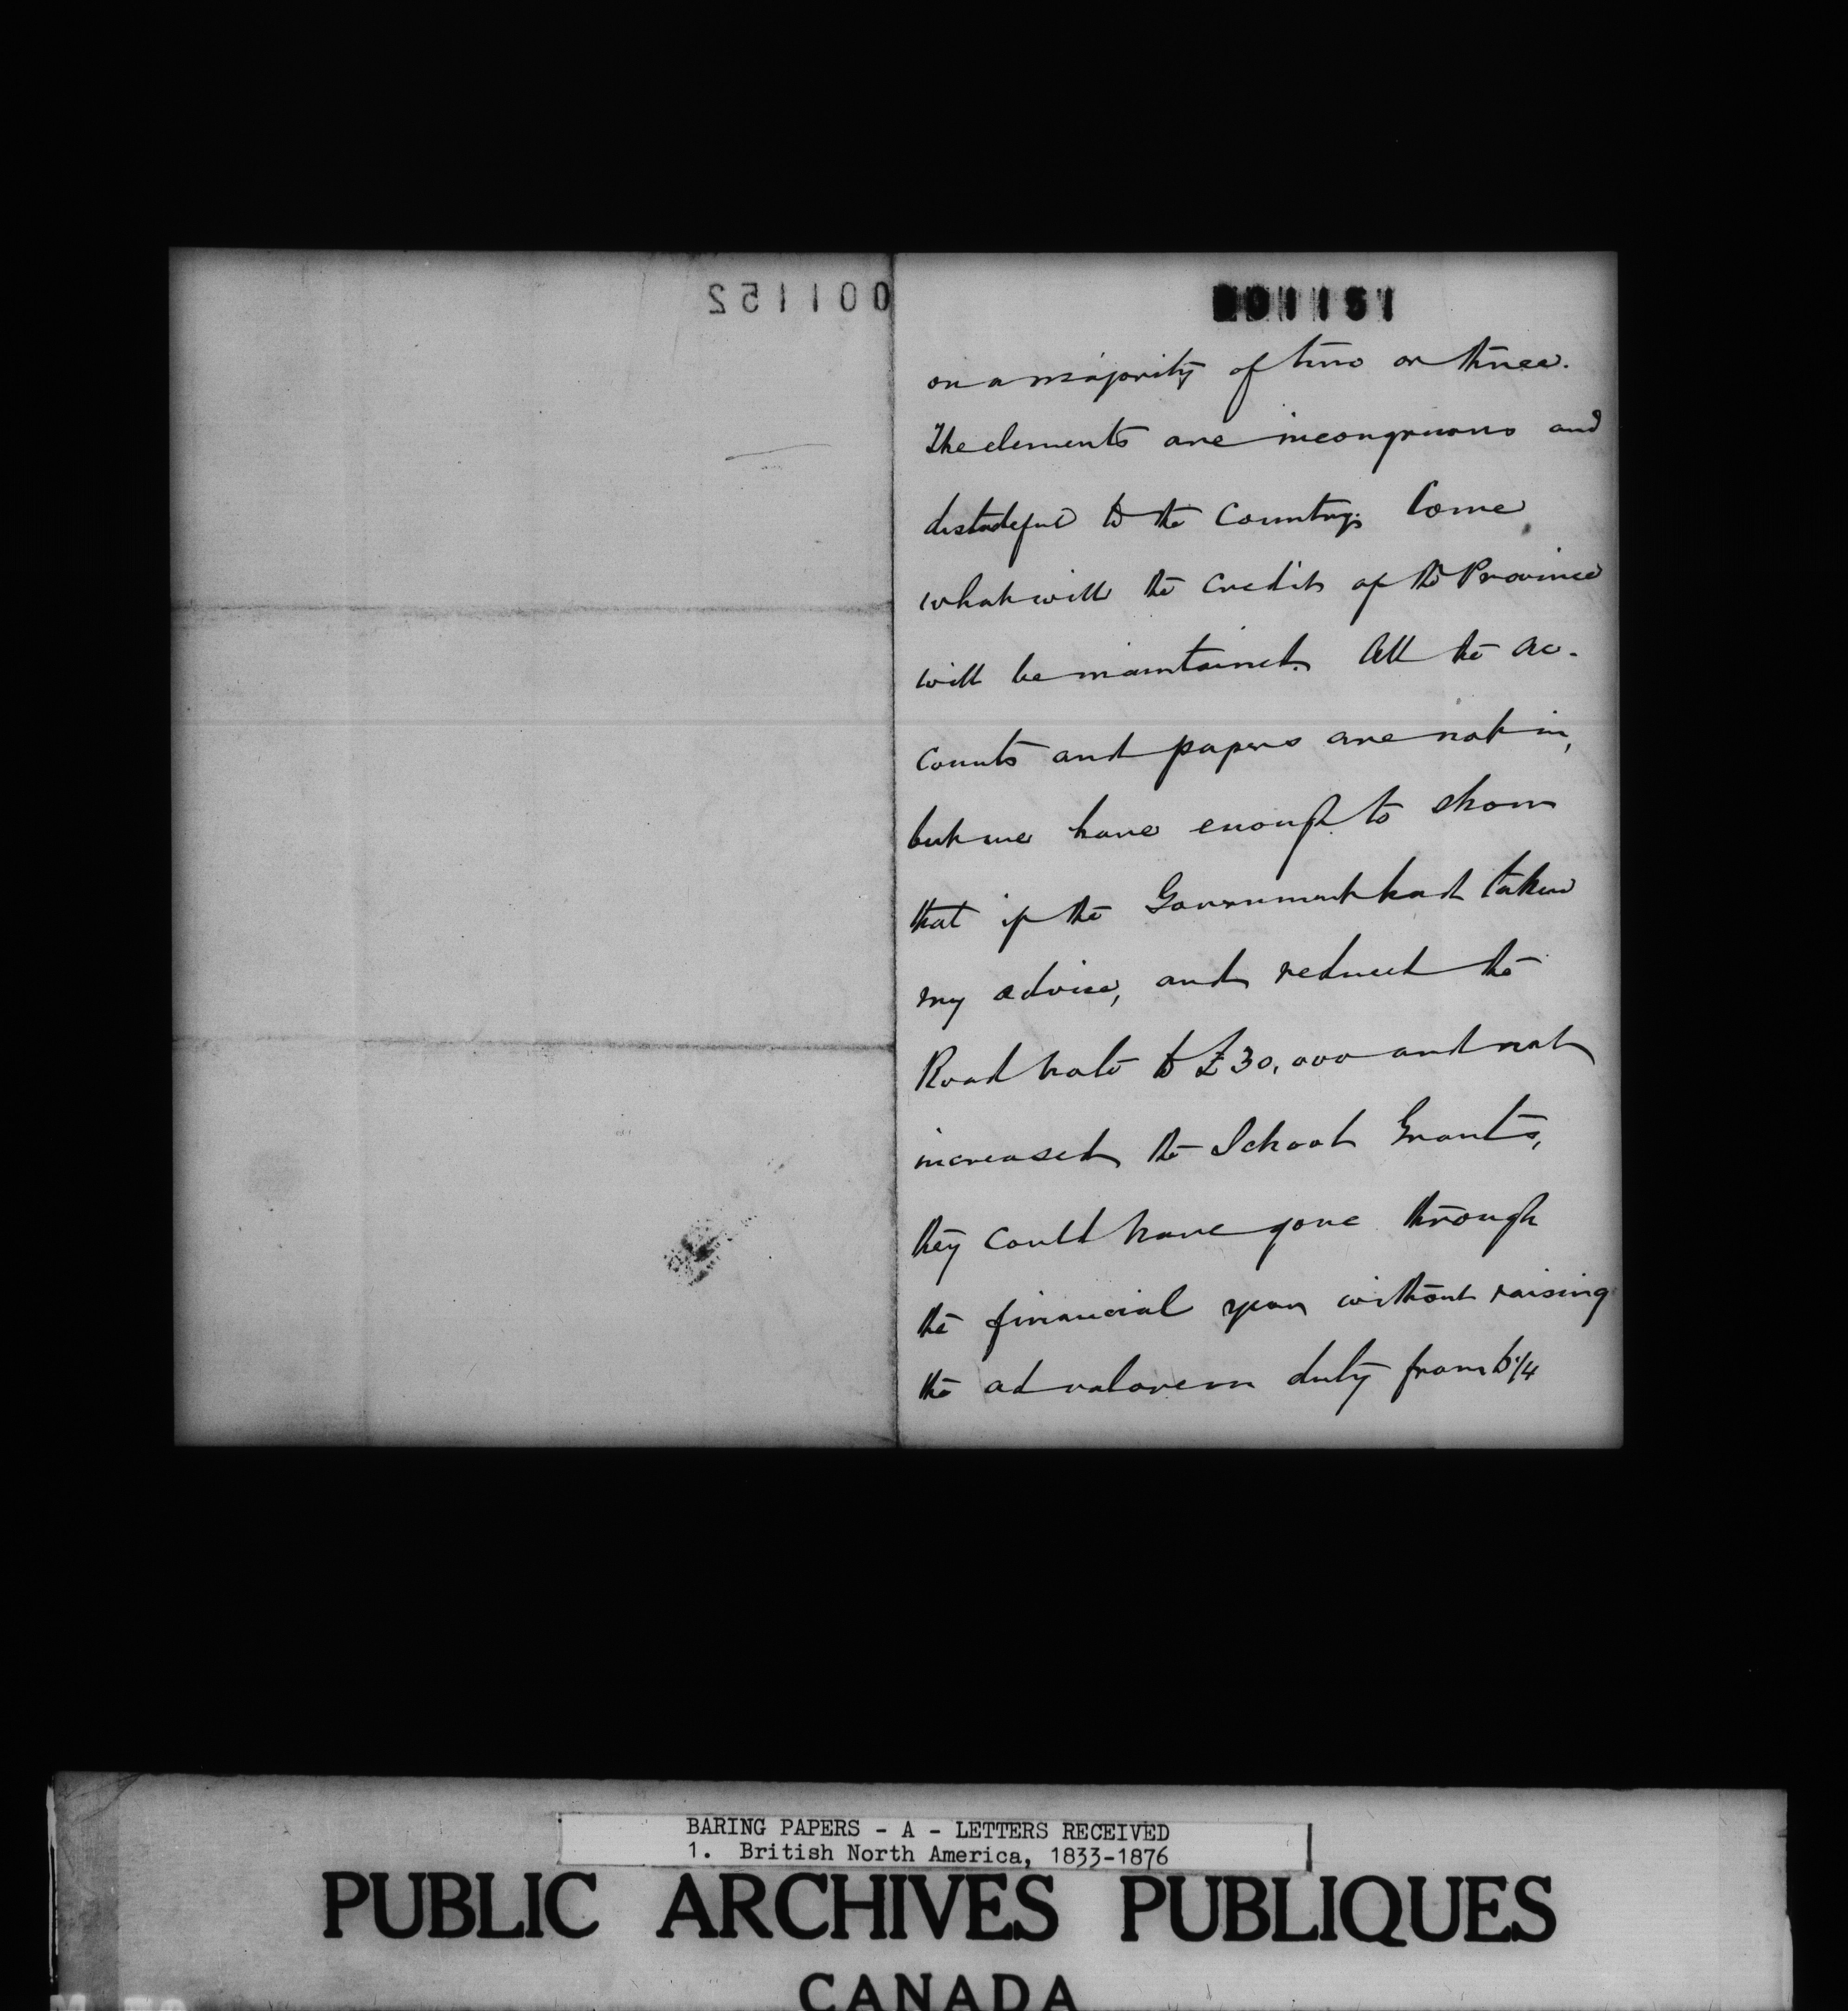 001152
001151
on a majority of two or three.
The elements are incongruous and
distasteful to the Country. Come
what will the Credit of the Province
will be maintained. All the ac-
counts and papers are not in,
but we have enough to show
that if the Government had taken
my advice, and reduced the
Road vote to £30,000 and not
increased the School Grants,
they could have gone through
the financial year without raising
the ad valorem duty from 6¼
BARING PAPERS - A - LETTERS RECEIVED
1. British North America, 1833-1876
PUBLIC ARCHIVES PUBLIQUES
CANADA